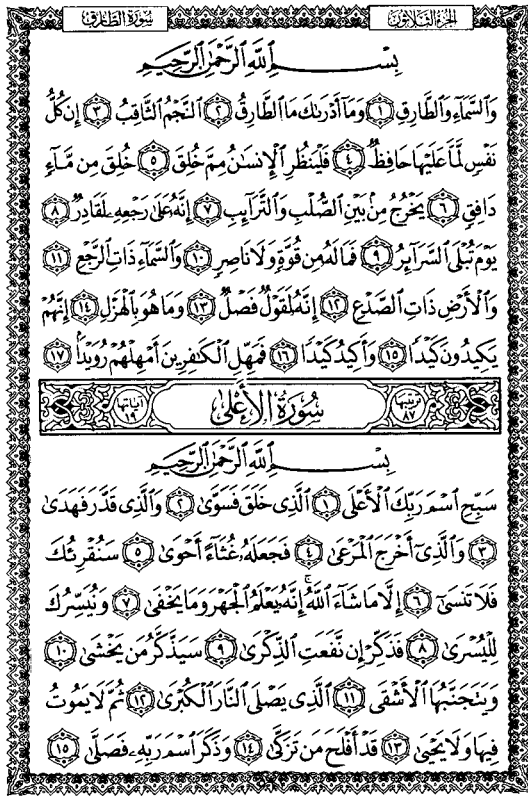 الجزء الثلاثون سورة الطارق
بِسْمِ ٱللَّهِ ٱلرَّحْمَٰنِ ٱلرَّحِيمِ
وَٱلسَّمَآءِ وَٱلطَّارِقِ ١ وَمَآ أَدْرَىٰكَ مَا ٱلطَّارِقُ ٢ ٱلنَّجْمُ ٱلثَّاقِبُ ٣ إِن كُلُّ
نَفْسٍ لَّمَّا عَلَيْهَا حَافِظٌ ٤ فَلْيَنظُرِ ٱلْإِنسَٰنُ مِمَّ خُلِقَ ٥ خُلِقَ مِن مَّآءٍ
دَافِقٍ ٦ يَخْرُجُ مِنۢ بَيْنِ ٱلصُّلْبِ وَٱلتَّرَآئِبِ ٧ إِنَّهُۥ عَلَىٰ رَجْعِهِۦ لَقَادِرٌ ٨
يَوْمَ تُبْلَى ٱلسَّرَآئِرُ ٩ فَمَا لَهُۥ مِن قُوَّةٍ وَلَا نَاصِرٍ ١٠ وَٱلسَّمَآءِ ذَاتِ ٱلرَّجْعِ ١١
وَٱلْأَرْضِ ذَاتِ ٱلصَّدْعِ ١٢ إِنَّهُۥ لَقَوْلٌ فَصْلٌ ١٣ وَمَا هُوَ بِٱلْهَزْلِ ١٤ إِنَّهُمْ
يَكِيدُونَ كَيْدًا ١٥ وَأَكِيدُ كَيْدًا ١٦ فَمَهِّلِ ٱلْكَٰفِرِينَ أَمْهِلْهُمْ رُوَيْدًۢا ١٧
ترتيبها ٨٧ سُورَةُ الأَعْلَىٰ آياتها ١٩
بِسْمِ ٱللَّهِ ٱلرَّحْمَٰنِ ٱلرَّحِيمِ
سَبِّحِ ٱسْمَ رَبِّكَ ٱلْأَعْلَى ١ ٱلَّذِى خَلَقَ فَسَوَّىٰ ٢ وَٱلَّذِى قَدَّرَ فَهَدَىٰ
٣ وَٱلَّذِىٓ أَخْرَجَ ٱلْمَرْعَىٰ ٤ فَجَعَلَهُۥ غُثَآءً أَحْوَىٰ ٥ سَنُقْرِئُكَ
فَلَا تَنسَىٰٓ ٦ إِلَّا مَا شَآءَ ٱللَّهُ ۚ إِنَّهُۥ يَعْلَمُ ٱلْجَهْرَ وَمَا يَخْفَىٰ ٧ وَنُيَسِّرُكَ
لِلْيُسْرَىٰ ٨ فَذَكِّرْ إِن نَّفَعَتِ ٱلذِّكْرَىٰ ٩ سَيَذَّكَّرُ مَن يَخْشَىٰ ١٠
وَيَتَجَنَّبُهَا ٱلْأَشْقَى ١١ ٱلَّذِى يَصْلَى ٱلنَّارَ ٱلْكُبْرَىٰ ١٢ ثُمَّ لَا يَمُوتُ
فِيهَا وَلَا يَحْيَىٰ ١٣ قَدْ أَفْلَحَ مَن تَزَكَّىٰ ١٤ وَذَكَرَ ٱسْمَ رَبِّهِۦ فَصَلَّىٰ ١٥